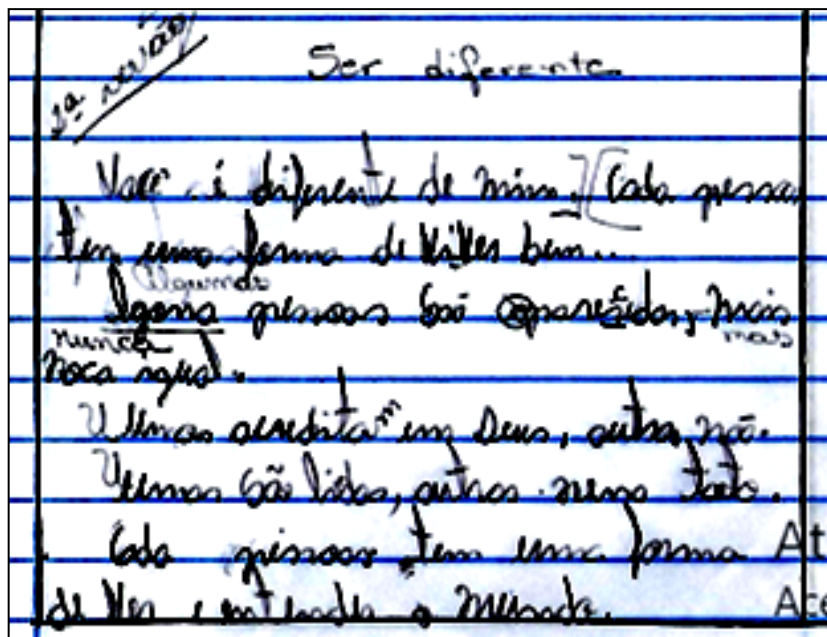 1ª revisão
Ser diferente
Você é diferente de mim. [Cada pessoa
tem uma forma de viver bem...
Algumas
Algona pessoas são aparecidas, mais
nunca mas
noca igual.
Umas acreditam em Deus, outras não.
Umas são lidas, outras nem tato.
Cada pessoas tem uma forma At
de ver e entender o mundo. Ace